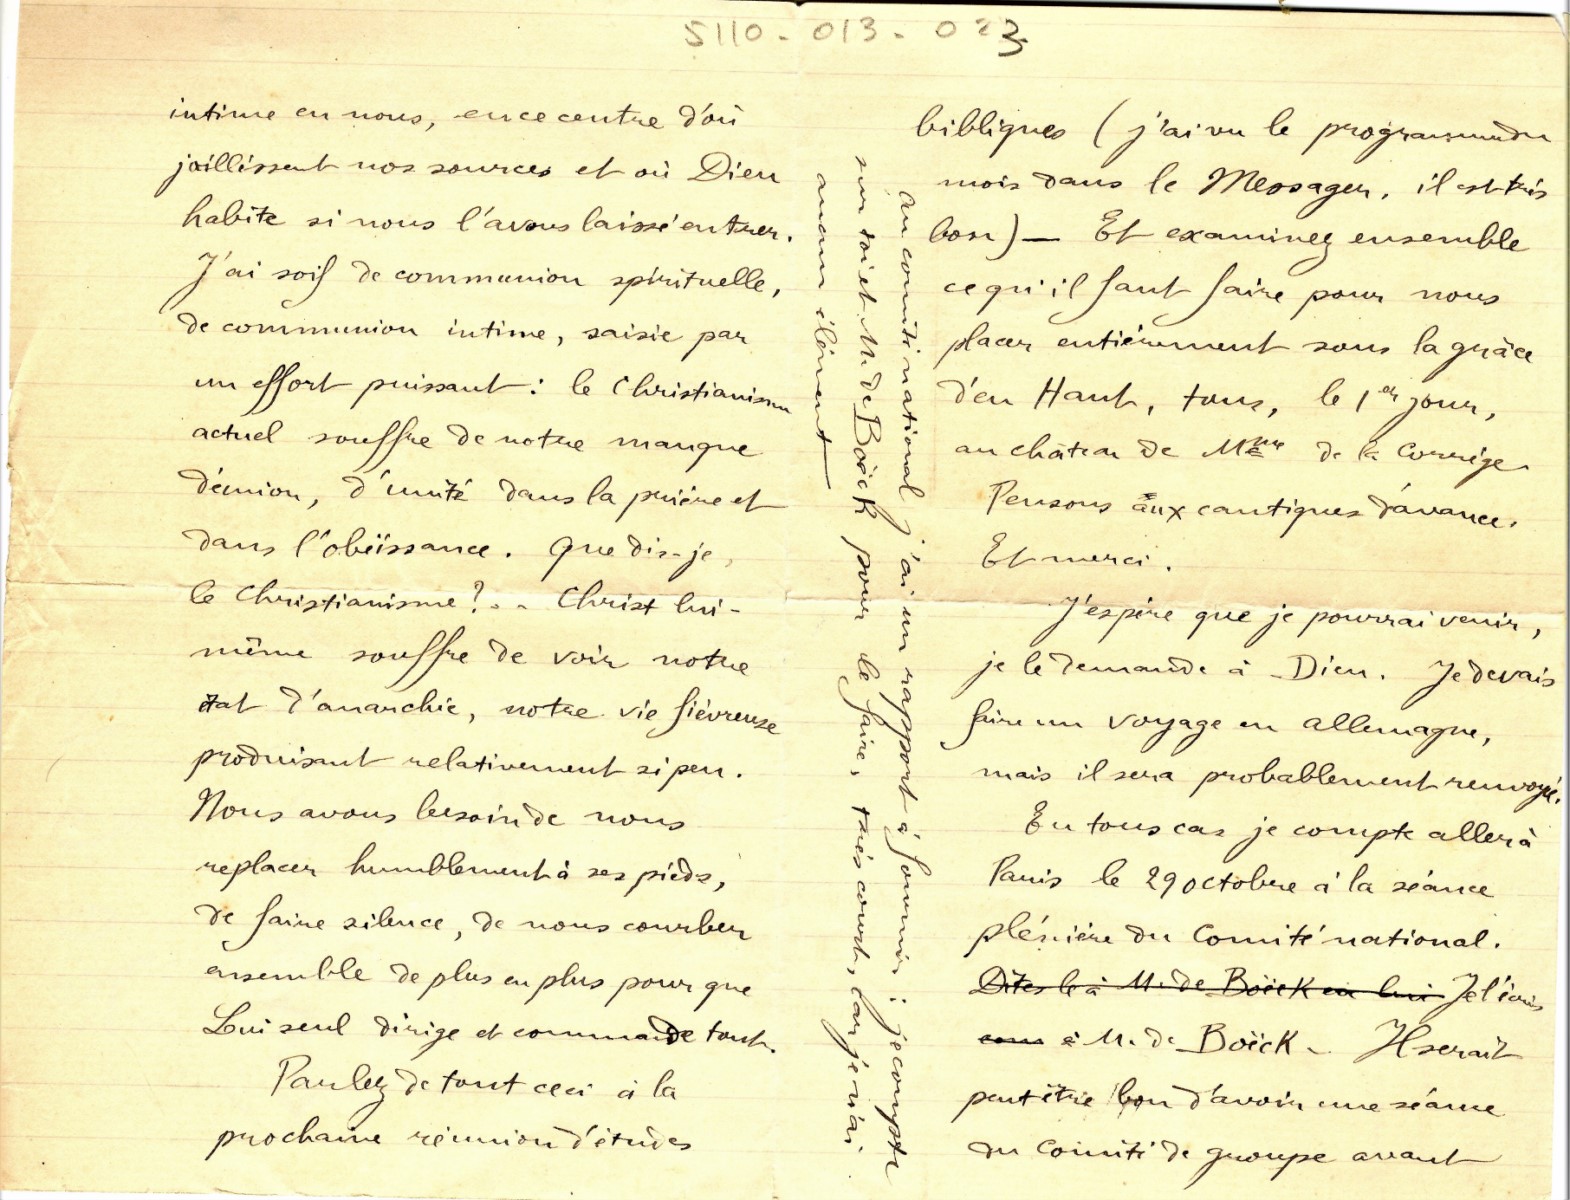 5110-013-023
intime en nous, en ce centre d'où
jaillissent nos sources et où Dieu
habite si nous l'avons laissé entrer.
J'ai soif de communion spirituelle,
de communion intime, saisie par
un effort puissant : le Christianisme
actuel souffre de notre manque
d'union, d'unité dans la prière et
dans l'obéissance. Que dis-je,
le Christianisme ?.. Christ lui-
même souffre de voir notre
état d'anarchie, notre vie fiévreuse
produisant relativement si peu.
Nous avons besoin de nous
replacer humblement à ses pieds,
de faire silence, de nous courber
ensemble de plus en plus pour que
Lui seul dirige et commande tout.
Parlez de tout ceci à la
prochaine réunion d'études
bibliques (j'ai vu le programme du
mois dans le Messager, il est très
bon) — Et examinez ensemble
ce qu'il faut faire pour nous
placer entièrement sous la grâce
d'en Haut, tous, le 1er jour,
au château de Mme de la Corrège.
Pensons aux cantiques d'avance.
Et merci.
J'espère que je pourrai venir,
je le demande à Dieu. Je devais
faire un voyage en Allemagne,
mais il sera probablement renvoyé.
En tous cas je compte aller à
Paris le 29 octobre à la séance
plénière du Comité national.
Dites le à M. de Boëck en lui Je l'écris
à M. de Boëck. Il serait
peut être bon d'avoir une séance
du Comité de groupe avant
Au comité national j'ai un rapport à fournir ; je compte
sur toi et M. de Boëck pour le faire, très court, car je n'ai
aucun élément —